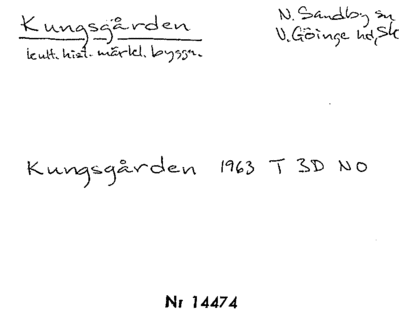 Kungsgården
kult. hist. märkl. byggn.
N. Sandby sn
V. Göinge hd, Sk
Kungsgården 1963 T 3D NO
Nr 14474